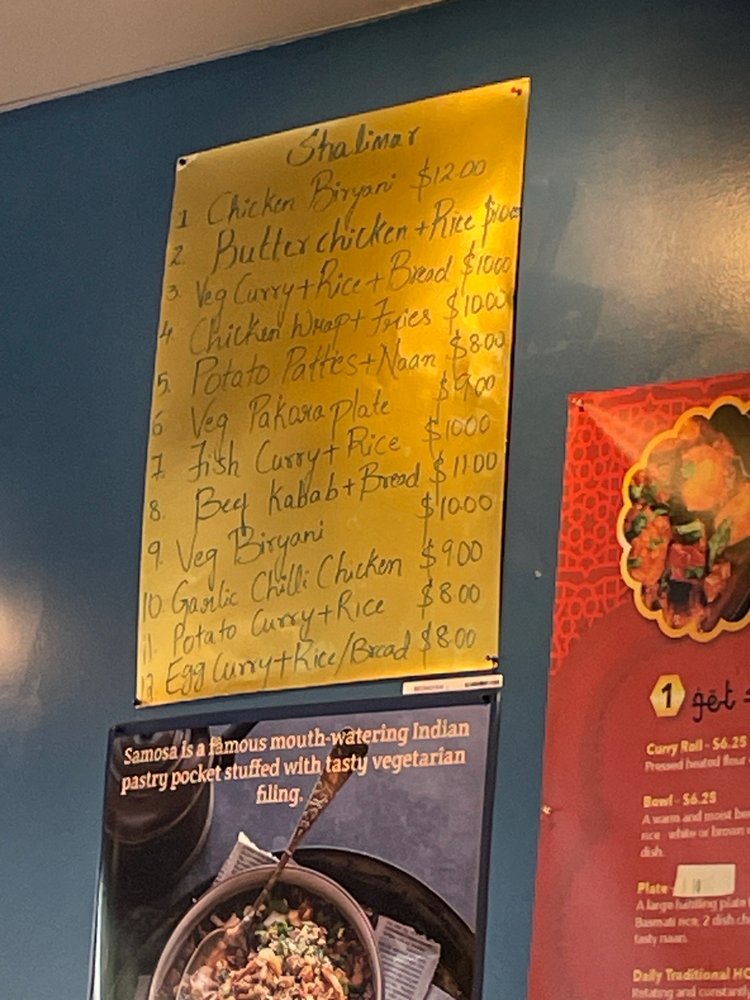 Shalimar
1 Chicken Biryani $12.00
2. Butter chicken+Rice
3. Veg Curry+Rice+Bread $10.00
4. Chicken Wrap+Fries $10.00
5. Potato Patties+Naan $8.00
6 Veg Pakora plate $9.00
7. Fish Curry+Rice $10.00
8. Beef Kabab+Bread $11.00
9. Veg Biryani $10.00
10 Garlic Chilli Chicken $9.00
11. Potato Curry+Rice $8.00
12 Egg Curry+Rice/Bread $8.00
Samosa is a famous mouth-watering Indian
pastry pocket stuffed with tasty vegetarian
filing.
1 get
Curry Roll - $6.25
Pressed heated flour
Bowl - $6.25
A warm and moist
rice - white or brown
dish.
Plate
A large plate
Basmati rice, 2 dish
tasty naan.
Daily Traditional
Rotating and